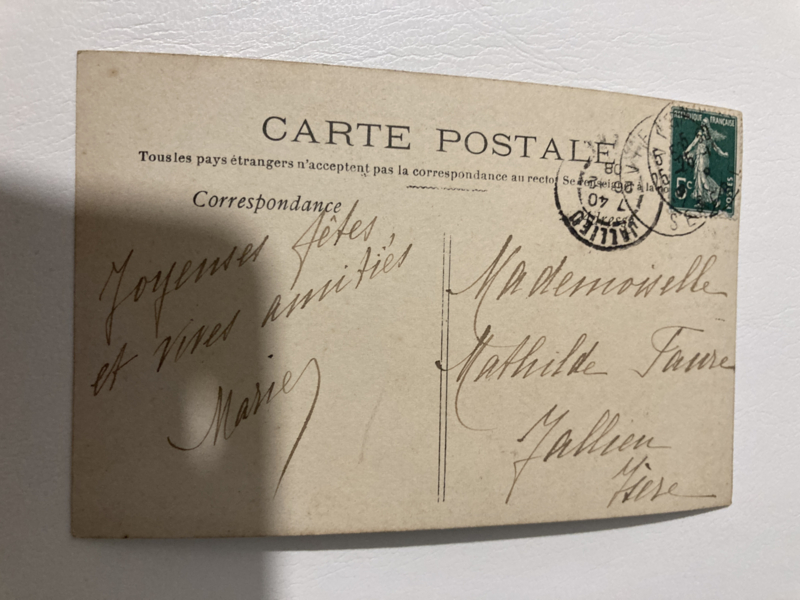 CARTE POSTALE
Tous les pays étrangers n'acceptent pas la correspondance au recto
Correspondance
Joyeuses fêtes,
et vives amitiés
Marie
Mademoiselle
Mathilde Faure
Jallieu
Isère
JALLIEU
7 40
26 12
08
FRANÇAISE
5c